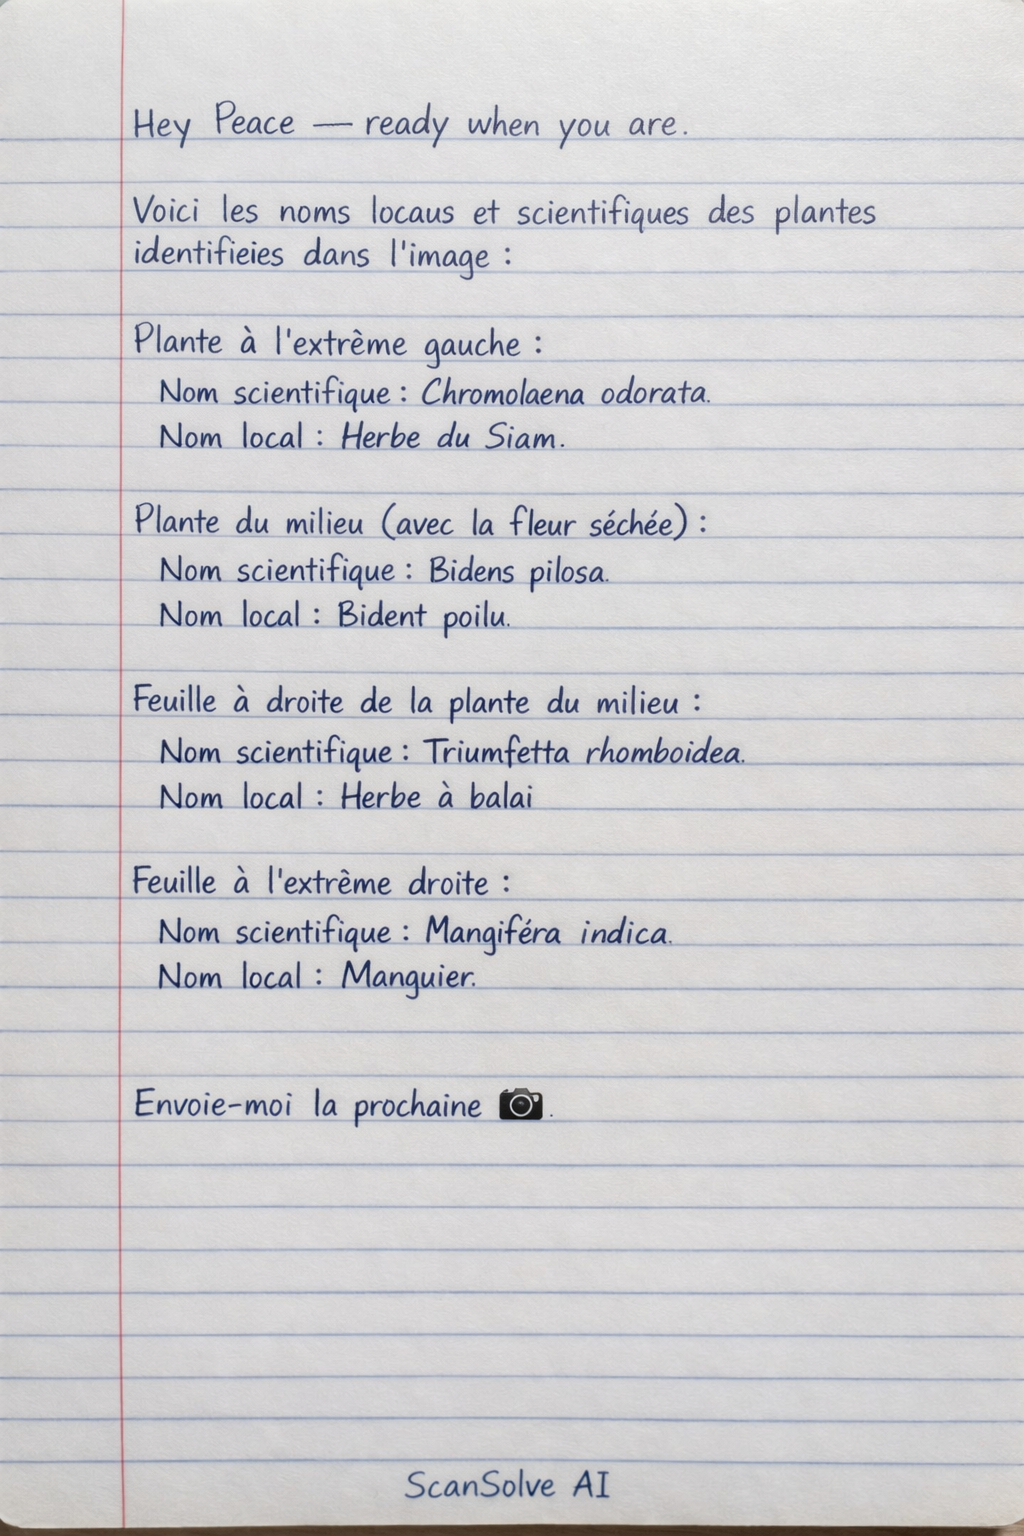 Hey Peace — ready when you are.
Voici les noms locaus et scientifiques des plantes
identifieies dans l'image :
Plante à l'extrême gauche :
Nom scientifique : Chromolaena odorata.
Nom local : Herbe du Siam.
Plante du milieu (avec la fleur séchée) :
Nom scientifique : Bidens pilosa.
Nom local : Bident poilu.
Feuille à droite de la plante du milieu :
Nom scientifique : Triumfetta rhomboidea.
Nom local : Herbe à balai
Feuille à l'extrême droite :
Nom scientifique : Mangiféra indica.
Nom local : Manguier.
Envoie-moi la prochaine 📷.
ScanSolve AI